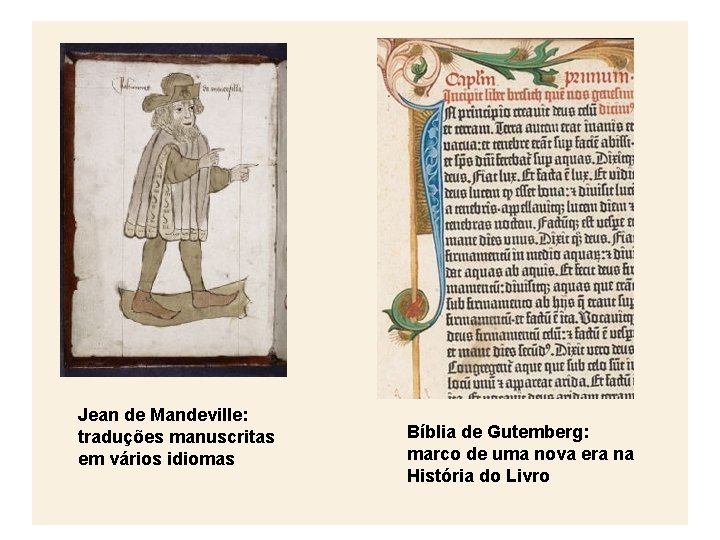 Jean de Mandeville:
traduções manuscritas
em vários idiomas
Caplm primum
Incipit liber bresich quē nos genesim
In principio creauit deus celū dicim⁹
et terram. Terra autem erat inanis et
vacua: et tenebre erāt sup faciē abissi
et sp̄s dn̄i ferebat sup aquas. Dixitqz
deus. Fiat lux. Et facta ē lux. Et vidit
deus lucem qz esset bona: et diuisit luce
a tenebris. appellauitqz lucem diem et
tenebras noctem. Factūqz est vespe et
mane dies vnus. Dixit qz deus. Fiat
firmamentū in medio aquarum: et
aquas ab aquis. Et fecit deus
diuisitqz aquas que
sub firmamento ab hijs
et factū ē ita. Vocauitqz
deus firmamentū celū: et factū ē vespe
et mane dies secūd⁹. Dixit vero deus
Congregent aque que sub celo sūt
locū vnū et appareat arida. Et factū
Bíblia de Gutemberg:
marco de uma nova era na
História do Livro